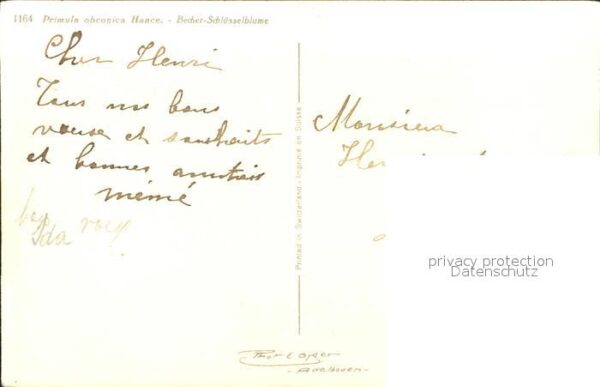 1164 Primula obconica Hance. - Becher-Schlüsselblume
Cher Henri
Tous nos bons
voeux et souhaits
et bonnes amitiés
mémé
Ida
Printed in Switzerland - Imprimé en Suisse
Monsieur
privacy protection
Datenschutz
Adelboden